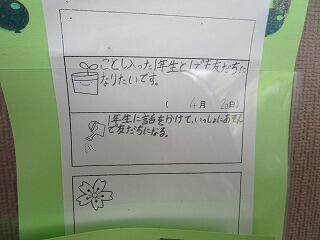 ことし入った1年生と友だちに
なりたいです。
( 4月 20日)
1年生に話をかけて、いっしょにあそん
で友だちになる。